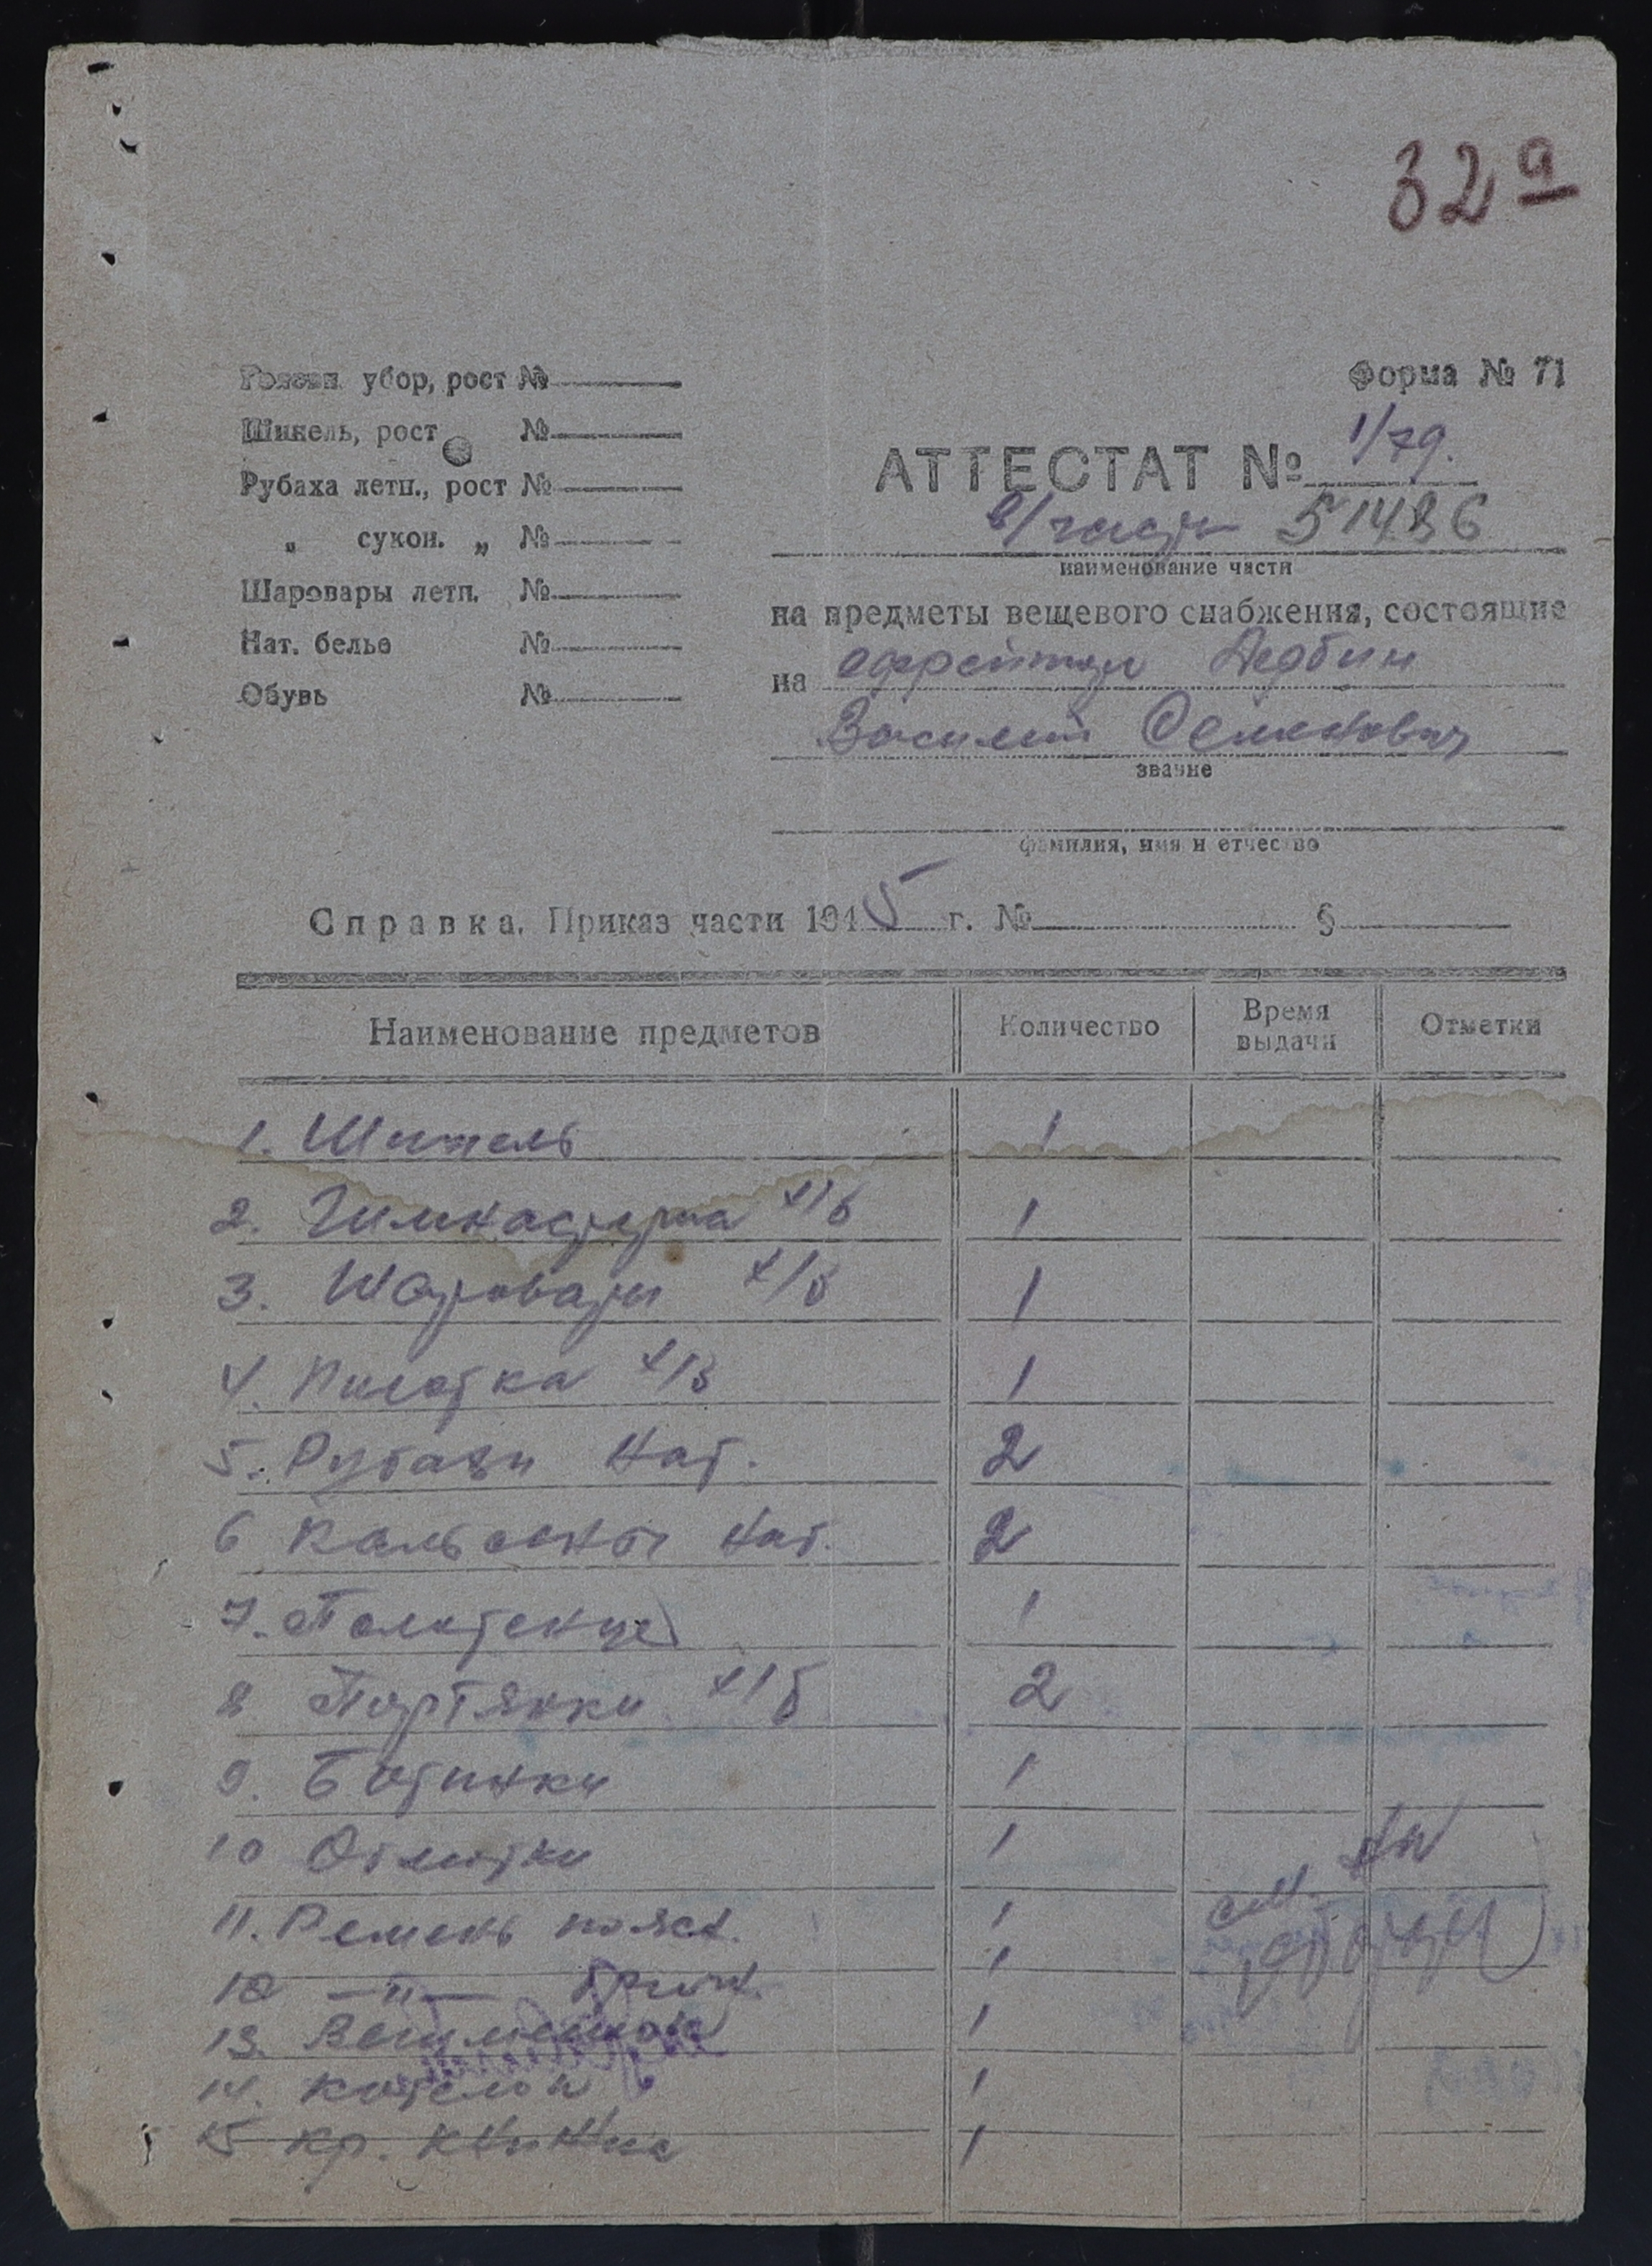 32а
Головн. убор, рост №
Шинель, рост №
Рубаха летн., рост №
„ сукон. „ №
Шаровары летн. №
Нат. белье №
Обувь №
Форма № 71
АТТЕСТАТ № 1/79.
в/части 51486
наименование части
на предметы вещевого снабжения, состоящие
на ефрейтор
Василий Семенович
звание
фамилия, имя и отчество
Справка. Приказ части 1945 г. № §
Наименование предметов Количество Время выдачи Отметки
1. Шинель 1
2. Гимнастерка х/б 1
3. Шаровары х/б 1
4. Пилотка х/б 1
5. Рубахи нат. 2
6 Кальсоны нат. 2
7. Полотенце 1
8 Портянки х/б 2
9. Ботинки 1
10 Обмотки 1
11. Ремень поясн. 1
12 —"— брючн. 1
13. Вещмешок 1
14. Котелок 1
15 Кр. книжка 1
см. на
обороте